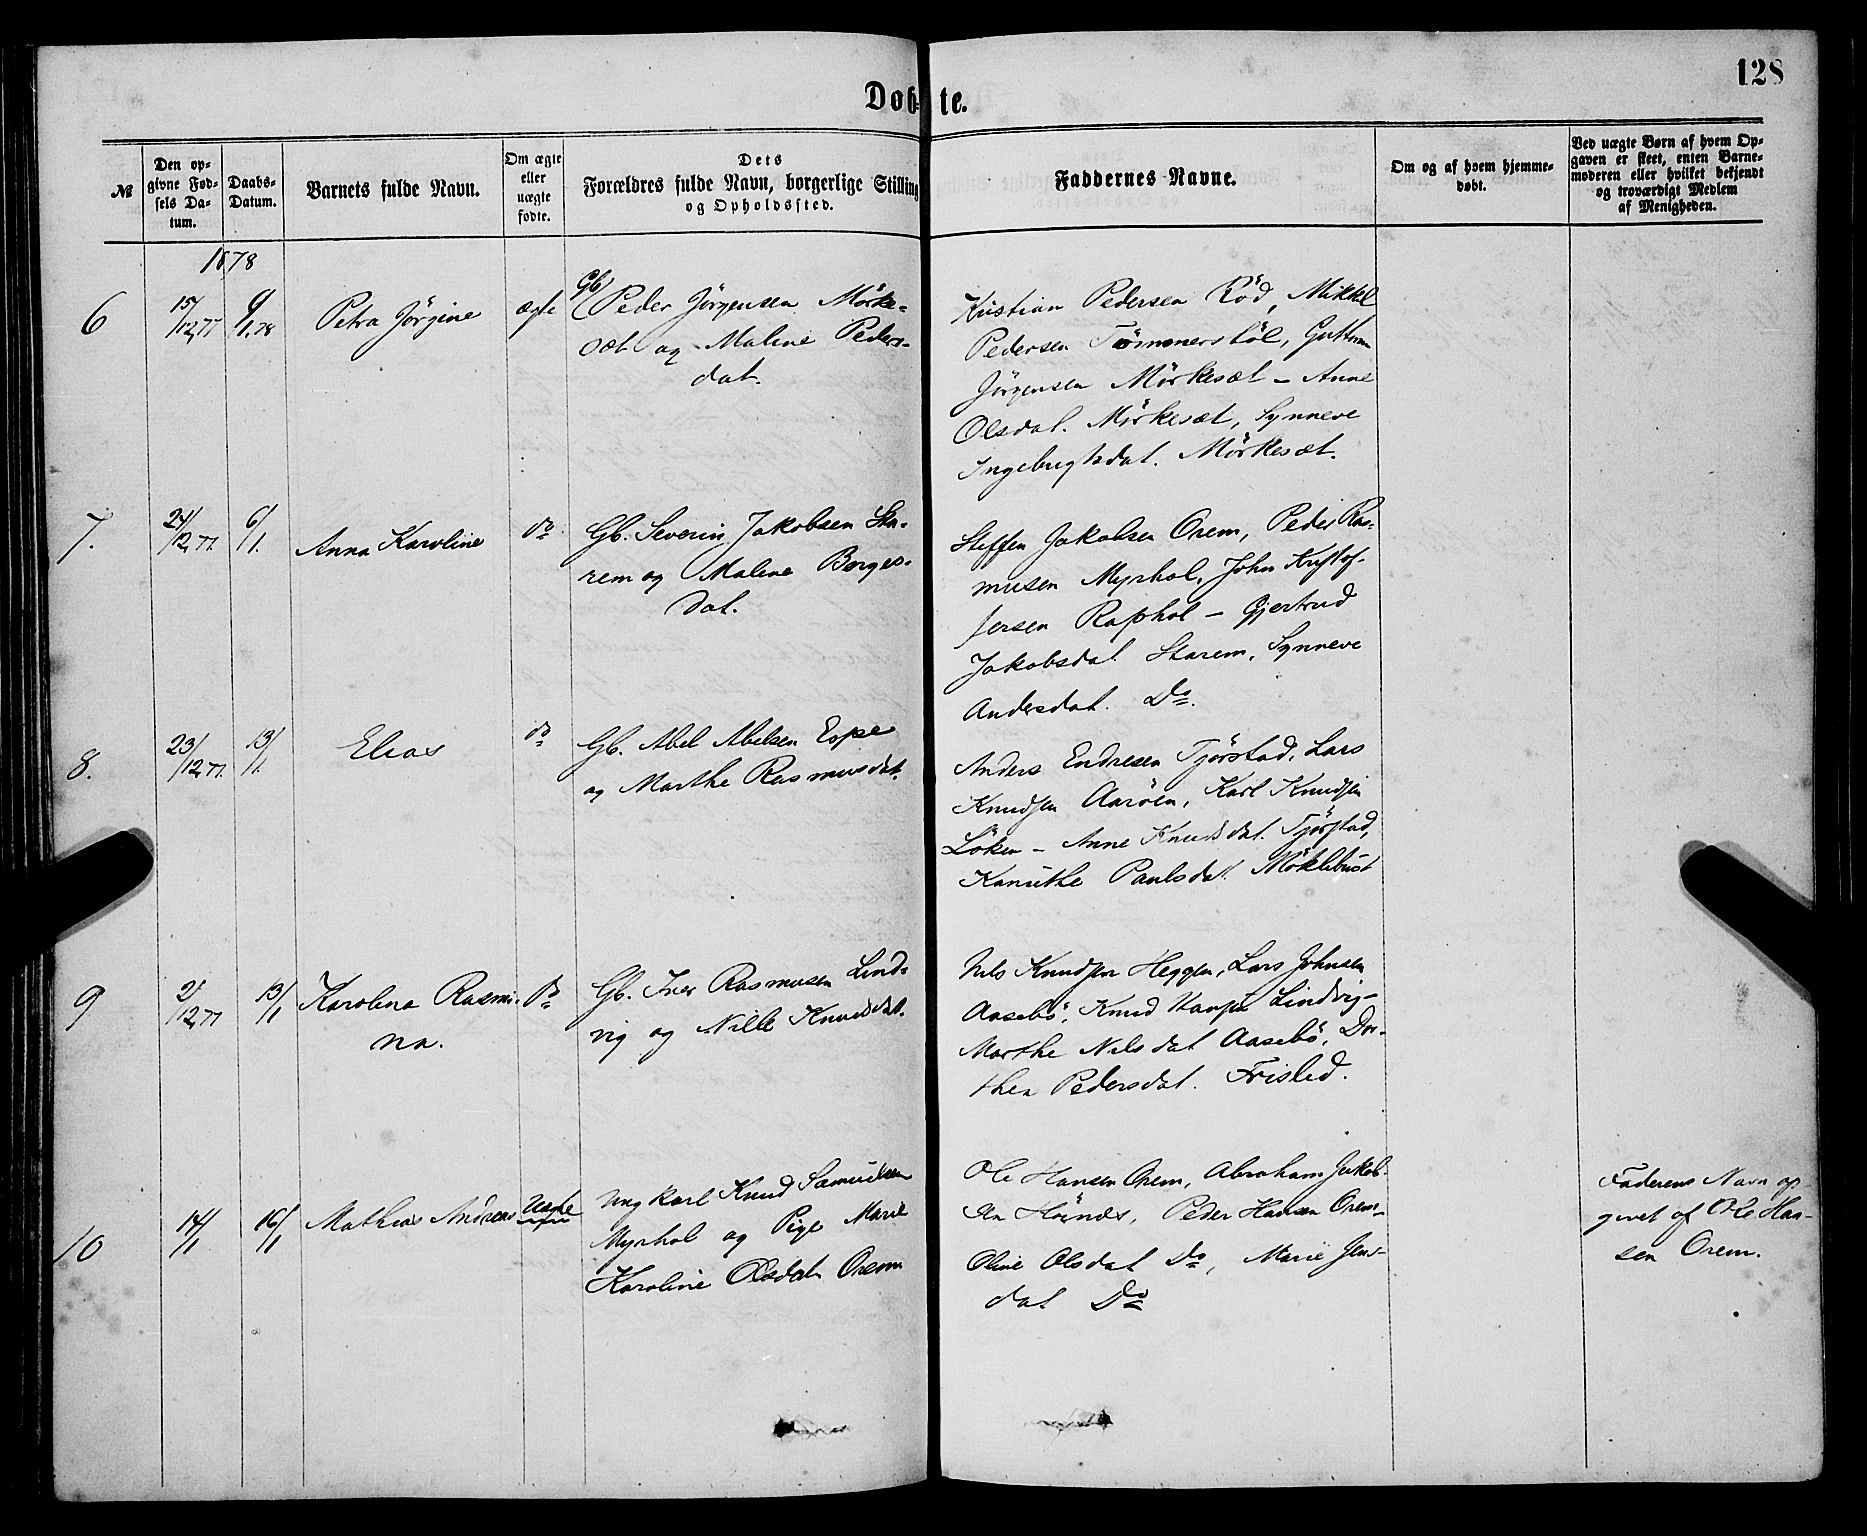 128
Døbte.
№
Den op-
givne Fød-
sels Da-
tum.
Daabs-
Datum.
Barnets fulde Navn.
Om ægte
eller
uægte
fødte.
Dets
Forældres fulde Navn, borgerlige Stilling
og Opholdssted.
Faddernes Navne.
Om og af hvem hjemme-
døbt.
Ved uægte Børn af hvem Op-
gaven er skeet, enten Barne-
moderen eller hvilket bekjendt
og troværdigt Medlem
af Menigheden.
1878
6
15/12,77
6/1,78
Petra Jörgine
ægte
Gb. Peder Jörgensen Mörke-
sæt og Maline Peders-
dat.
Kristian Pedersen Röd, Mikkel
Pedersen Tömmerstöl, Guttorm
Jörgensen Mörkesæt – Anne
Olsdat. Mörkesæt, Synneve
Ingebrigtsdat. Mörkesæt.
7.
24/12,77.
6/1.
Anna Karoline
do
Gb. Severin Jakobsen Sta-
rem og Maline Borges-
dat.
Steffen Jakobsen Orem, Peder Ras-
musen Myrhol, John Kristof-
fersen Raphol – Gjertrud
Jakobsdat. Starem, Synneve
Andersdat. Do.
8.
23/12,77.
13/1.
Elias
do
Gb. Abel Abelsen Espe
og Marthe Rasmusdat.
Anders Endresen Tjörstad, Lars
Knudsen Aaröen, Karl Knudsen
Löken – Anne Knudsdat. Tjörstad,
Kanuthe Paulsdat. Möklebust
9
2/12,77
13/1
Karolina Rasmi-
na.
do
Gb. Iver Rasmusen Lind-
vig og Nille Knudsdat.
Nils Knudsen Heggen, Lars Johnsen
Aasebö, Knud Lindvig –
Marthe Nilsdat Aasebö, Dor-
thea Pedersdat. Fristed.
10
14/1
16/1
Mathias Andreas
Uægte
Ungkarl Knud Samuelsen
Myrhol og Pige Marie
Karoline Olsdat Orem
Ole Hansen Orem, Abraham Jakob-
sen Hönes, Peder Hansen Orem –
Oline Olsdat Do, Marie Jens-
dat Do
Faderens Navn op-
givet af Ole Han-
sen Orem.